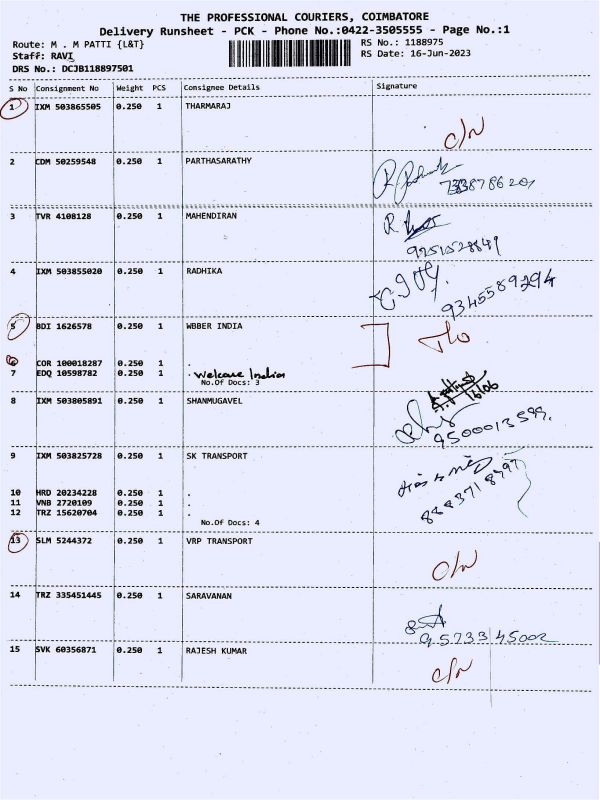 THE PROFESSIONAL COURIERS, COIMBATORE
Delivery Runsheet - PCK - Phone No.:0422-3505555 - Page No.:1
Route: M . M PATTI {L&T} RS No.: 1188975
Staff: RAVI RS Date: 16-Jun-2023
DRS No.: DCJB118897501
S No Consignment No Weight PCS Consignee Details Signature
1 IXM 503865505 0.250 1 THARMARAJ
2 CDM 50259548 0.250 1 PARTHASARATHY
3 TVR 4108128 0.250 1 MAHENDIRAN
4 IXM 503855020 0.250 1 RADHIKA
9345589294
5 BDI 1626578 0.250 1 WBBER INDIA
6 COR 100018287 0.250 1 .
7 EDQ 10598782 0.250 1 .
No.Of Docs: 3
8 IXM 503805891 0.250 1 SHANMUGAVEL
16/06
9500013599
9 IXM 503825728 0.250 1 SK TRANSPORT
10 HRD 20234228 0.250 1 .
11 VNB 2720109 0.250 1 .
12 TRZ 15620704 0.250 1 .
No.Of Docs: 4
13 SLM 5244372 0.250 1 VRP TRANSPORT
14 TRZ 335451445 0.250 1 SARAVANAN
95733 45002
15 SVK 60356871 0.250 1 RAJESH KUMAR